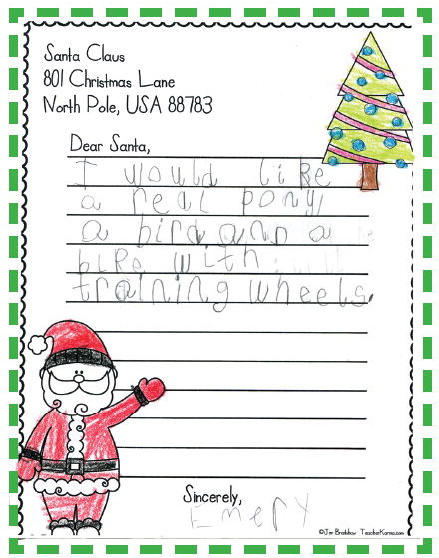 Santa Claus
801 Christmas Lane
North Pole, USA 88783
Dear Santa,
I would like
a real pony,
a bird, and a
bike with
training wheels.
Sincerely,
Emery
©Jim Bradshaw TeacherKarma.com